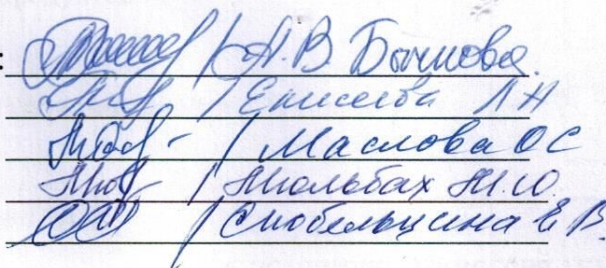 : / А.В. Бычкова.
/ Енисеева Л Н
/ Маслова О С
/ Мольбах М.Ю.
/ Скобельцина Е В.